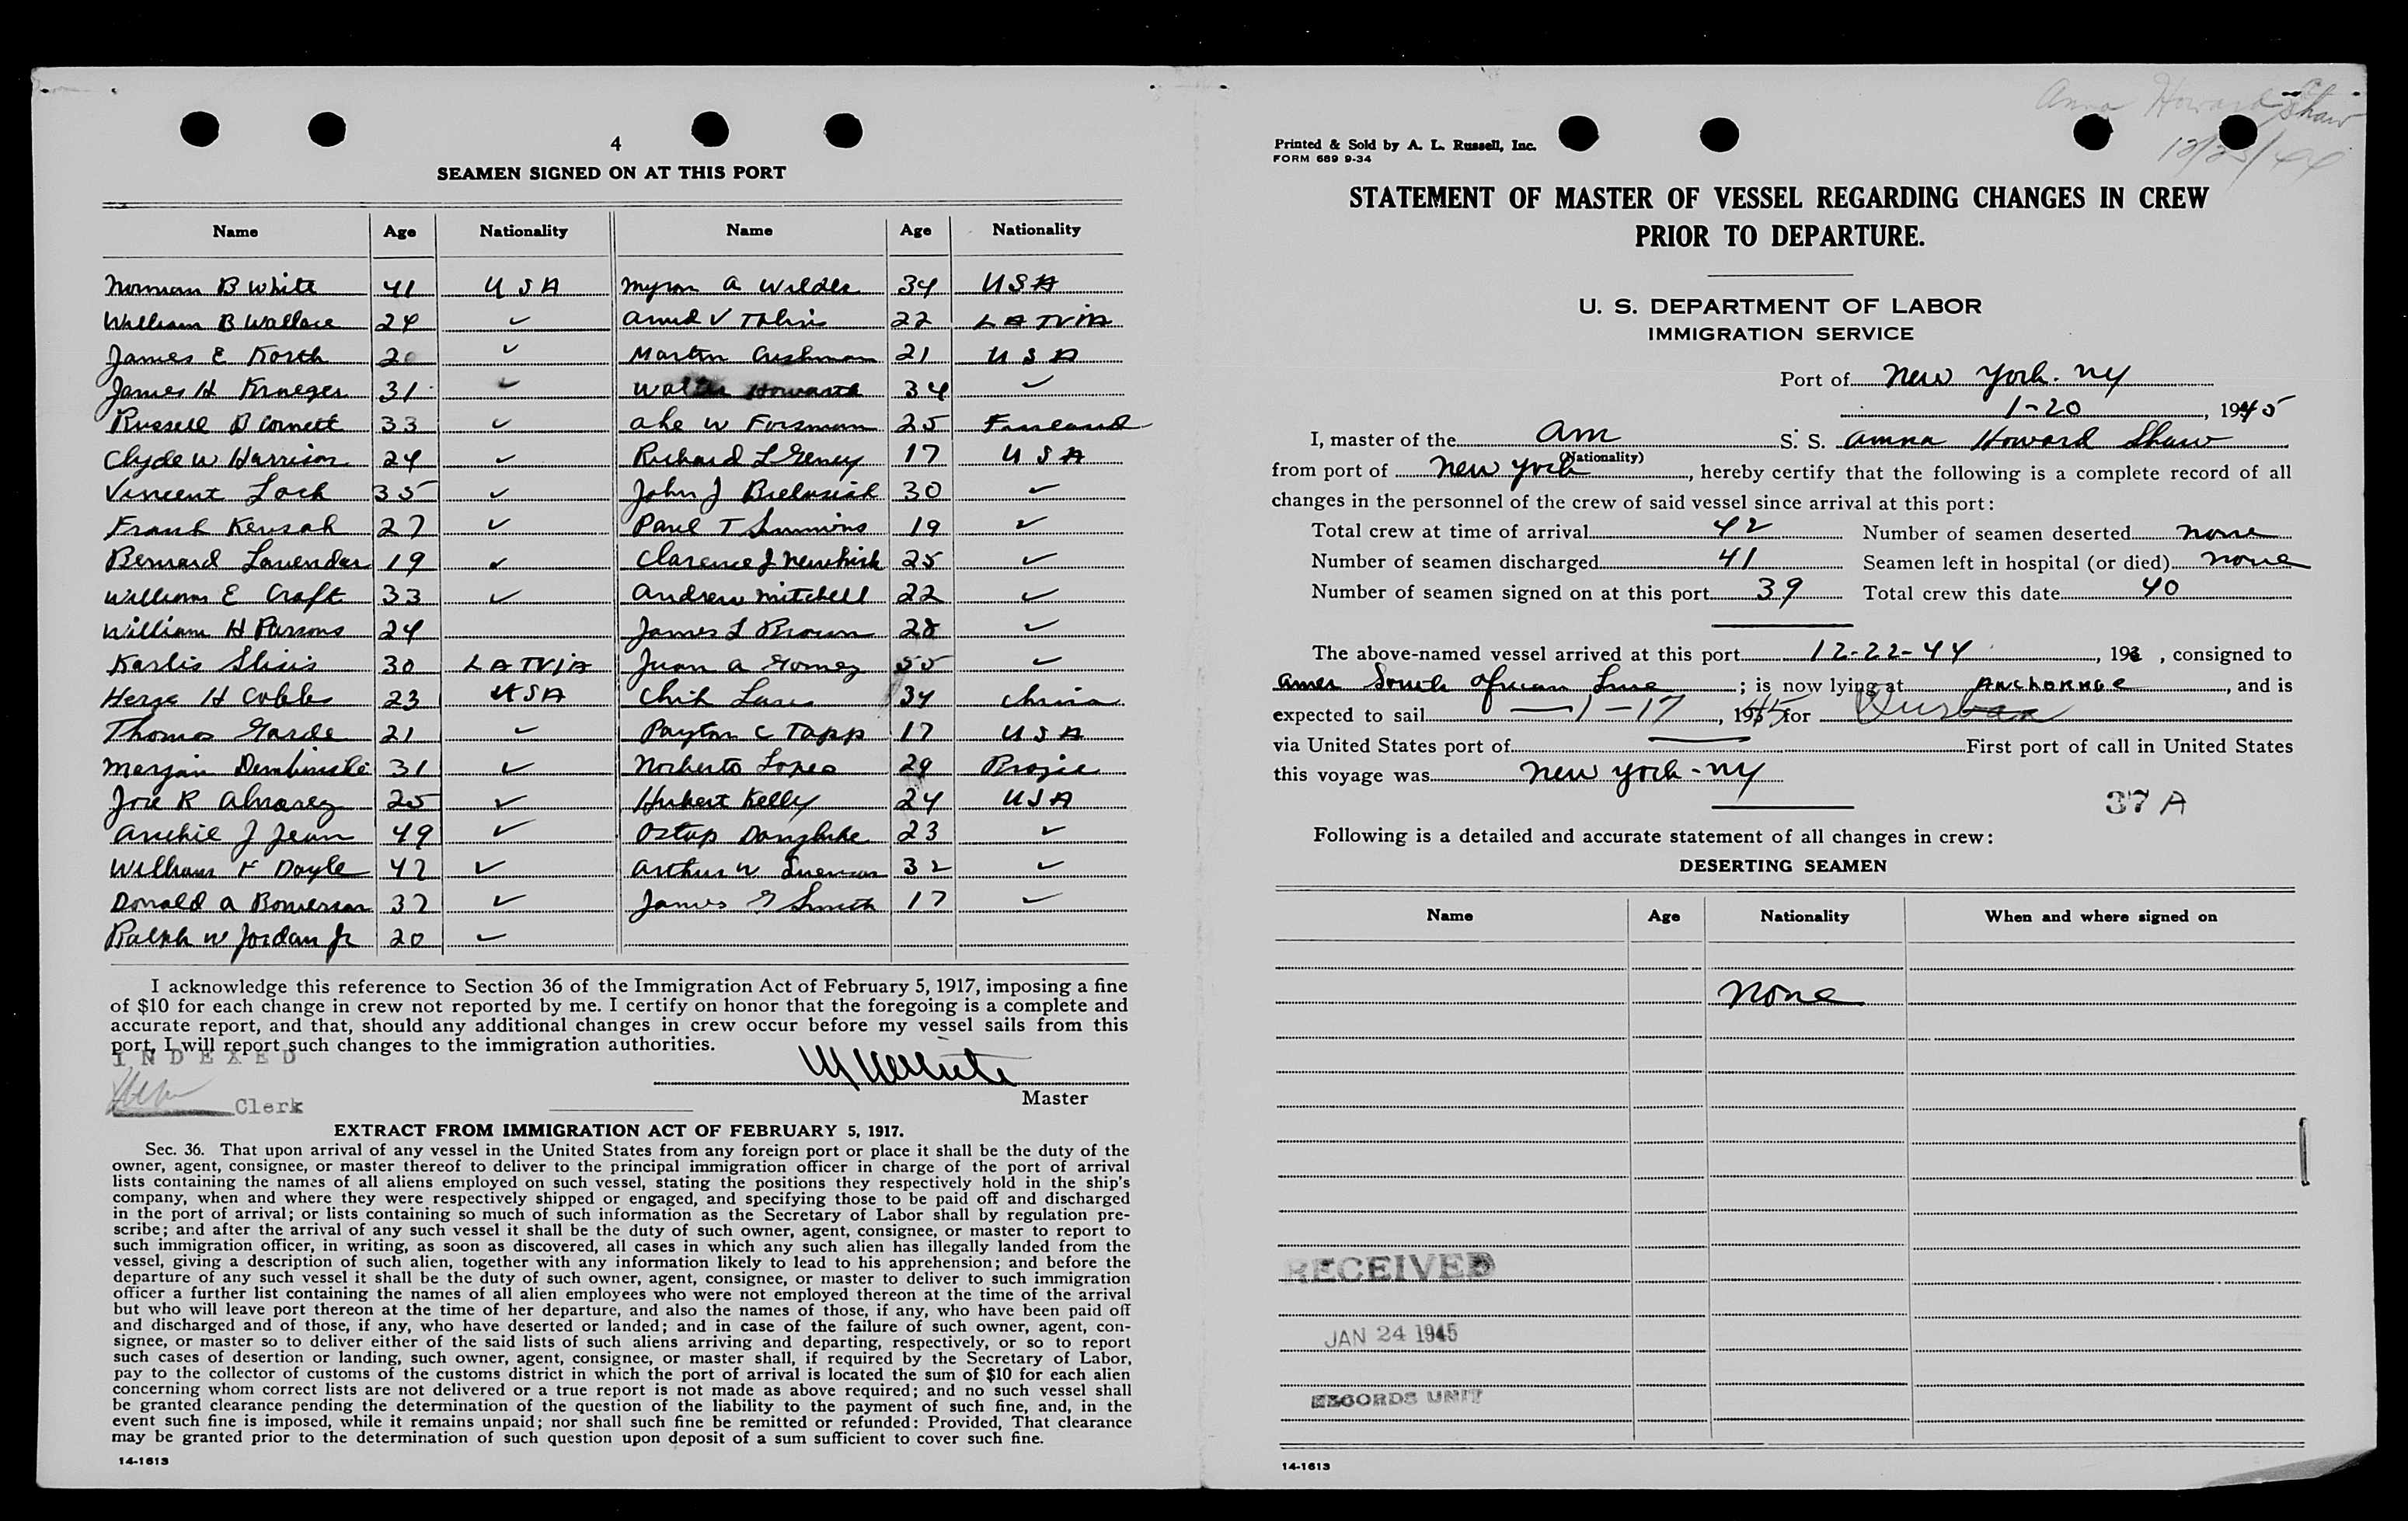 4
SEAMEN SIGNED ON AT THIS PORT
Name Age Nationality Name Age Nationality
Norman B White 41 U S A Myron A Wilder 34 U S A
William B Wallace 24 ✓ V 22 LATVIA
James E Korth 20 ✓ Martin Cushman 21 U S A
James H Krueger 31 ✓ Walter Howarth 34 ✓
Russell B Cornett 33 ✓ Ake W Forsman 25 Finland
Clyde W Harrison 24 ✓ Richard L 17 U S A
Vincent Lock 35 ✓ John J 30 ✓
Frank 27 ✓ Paul T Simmons 19 ✓
Bernard Lavender 19 ✓ Clarence J Newkirk 25 ✓
William E Craft 33 ✓ Andrew Mitchell 22 ✓
William H Parsons 24 James L Brown 28 ✓
Karlis 30 LATVIA Juan A Gomez 55 ✓
H 23 U S A 34 China
Thomas 21 ✓ Payton C Tapp 17 U S A
31 ✓ Norberto Lopes 29
Jose R Alvarez 25 ✓ Hubert Kelly 24 U S A
Archie J Jean 49 ✓ Ostap 23 ✓
William F Doyle 42 ✓ Arthur W 32 ✓
Donald A Bowersan 32 ✓ James G Smith 17 ✓
Ralph W Jordan Jr 20 ✓
I acknowledge this reference to Section 36 of the Immigration Act of February 5, 1917, imposing a fine
of $10 for each change in crew not reported by me. I certify on honor that the foregoing is a complete and
accurate report, and that, should any additional changes in crew occur before my vessel sails from this
port, I will report such changes to the immigration authorities.
INDEXED
Clerk
Master
EXTRACT FROM IMMIGRATION ACT OF FEBRUARY 5, 1917.
Sec. 36. That upon arrival of any vessel in the United States from any foreign port or place it shall be the duty of the
owner, agent, consignee, or master thereof to deliver to the principal immigration officer in charge of the port of arrival
lists containing the names of all aliens employed on such vessel, stating the positions they respectively hold in the ship's
company, when and where they were respectively shipped or engaged, and specifying those to be paid off and discharged
in the port of arrival; or lists containing so much of such information as the Secretary of Labor shall by regulation pre-
scribe; and after the arrival of any such vessel it shall be the duty of such owner, agent, consignee, or master to report to
such immigration officer, in writing, as soon as discovered, all cases in which any such alien has illegally landed from the
vessel, giving a description of such alien, together with any information likely to lead to his apprehension; and before the
departure of any such vessel it shall be the duty of such owner, agent, consignee, or master to deliver to such immigration
officer a further list containing the names of all alien employees who were not employed thereon at the time of the arrival
but who will leave port thereon at the time of her departure, and also the names of those, if any, who have been paid off
and discharged and of those, if any, who have deserted or landed; and in case of the failure of such owner, agent, con-
signee, or master so to deliver either of the said lists of such aliens arriving and departing, respectively, or so to report
such cases of desertion or landing, such owner, agent, consignee, or master shall, if required by the Secretary of Labor,
pay to the collector of customs of the customs district in which the port of arrival is located the sum of $10 for each alien
concerning whom correct lists are not delivered or a true report is not made as above required; and no such vessel shall
be granted clearance pending the determination of the question of the liability to the payment of such fine, and, in the
event such fine is imposed, while it remains unpaid; nor shall such fine be remitted or refunded: Provided, That clearance
may be granted prior to the determination of such question upon deposit of a sum sufficient to cover such fine.
14-1613
Anna Howard Shaw
12/23/44
Printed & Sold by A. L. Russell, Inc.
FORM 689 9-34
STATEMENT OF MASTER OF VESSEL REGARDING CHANGES IN CREW
PRIOR TO DEPARTURE.
U. S. DEPARTMENT OF LABOR
IMMIGRATION SERVICE
Port of New York. NY
1-20, 1945
I, master of the Am S. S. Amna Howard Shaw
(Nationality)
from port of New York, hereby certify that the following is a complete record of all
changes in the personnel of the crew of said vessel since arrival at this port:
Total crew at time of arrival 42 Number of seamen deserted none
Number of seamen discharged 41 Seamen left in hospital (or died) none
Number of seamen signed on at this port 39 Total crew this date 40
The above-named vessel arrived at this port 12-22-44, 193 , consigned to
Amer South African Line; is now lying at ANCHORAGE, and is
expected to sail 1-17, 1945 for Durban
via United States port of First port of call in United States
this voyage was New York - NY
37 A
Following is a detailed and accurate statement of all changes in crew:
DESERTING SEAMEN
Name Age Nationality When and where signed on
None
RECEIVED
JAN 24 1945
RECORDS UNIT
14-1613